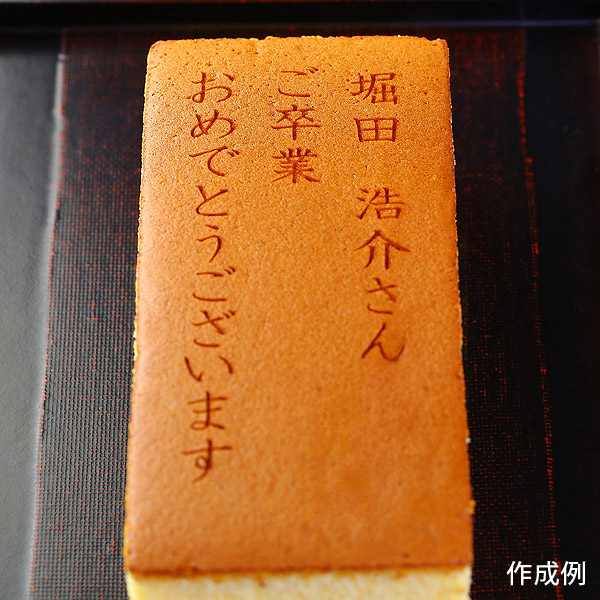 堀田 浩介さん
ご卒業
おめでとうございます
作成例